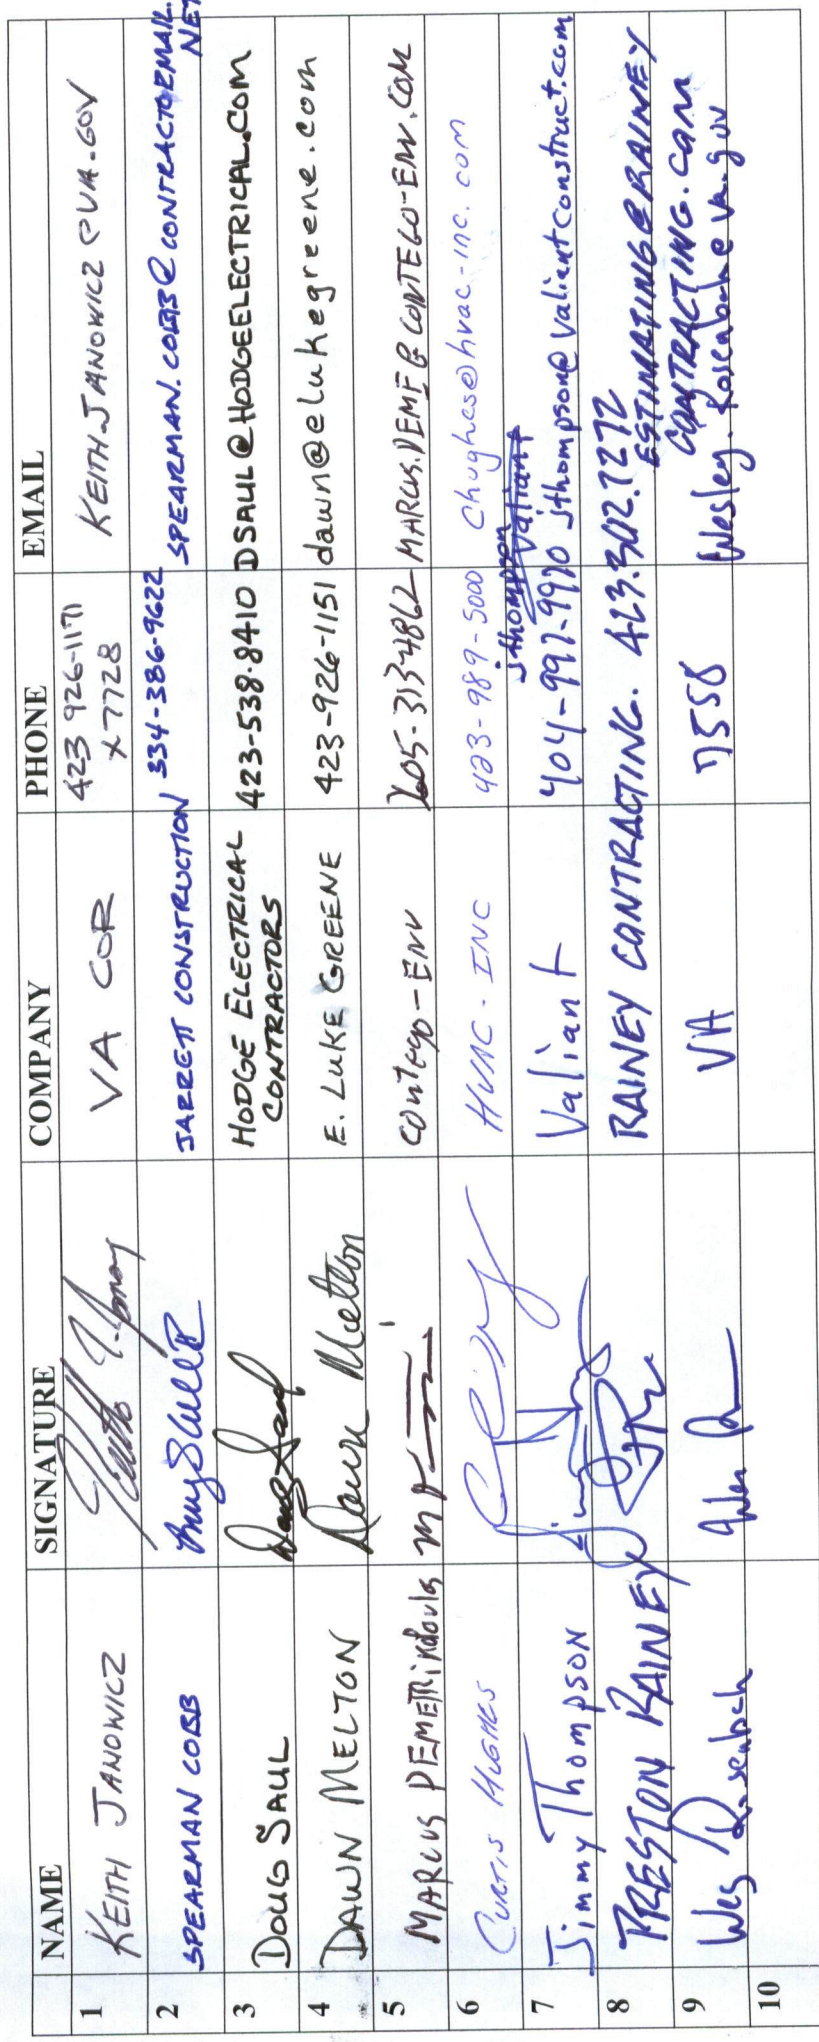 NAME SIGNATURE COMPANY PHONE EMAIL
1 KEITH JANOWICZ VA COR 423 926-1171 x7728 KEITH.JANOWICZ@VA.GOV
2 SPEARMAN COBB JARRETT CONSTRUCTION 334-386-9622 SPEARMAN.COBB@CONTRACTORMAIL.
NET
3 DOUG SAUL Doug Saul HODGE ELECTRICAL 423-538-8410 DSAUL@HODGEELECTRICAL.COM
CONTRACTORS
4 DAWN MELTON Dawn Melton E. LUKE GREENE 423-926-1151 dawn@elukegreene.com
5 MARCUS Contego-ENV 605-313-4862 MARCUS.DEME@CONTEGO-ENV.COM
6 CURTIS HUGHES HVAC-INC 423-989-5000 Chughes@hvac-inc.com
jthompson
Valiant
7 Jimmy Thompson Valiant 404-997-9970 jthompson@valiantconstruct.com
8 PRESTON RAINEY RAINEY CONTRACTING. 423.302.7272
ESTIMATING@RAINEY
CONTRACTING.COM
9 Wes Rosenbach VA 7558 Wesley.Rosenbach@va.gov
10